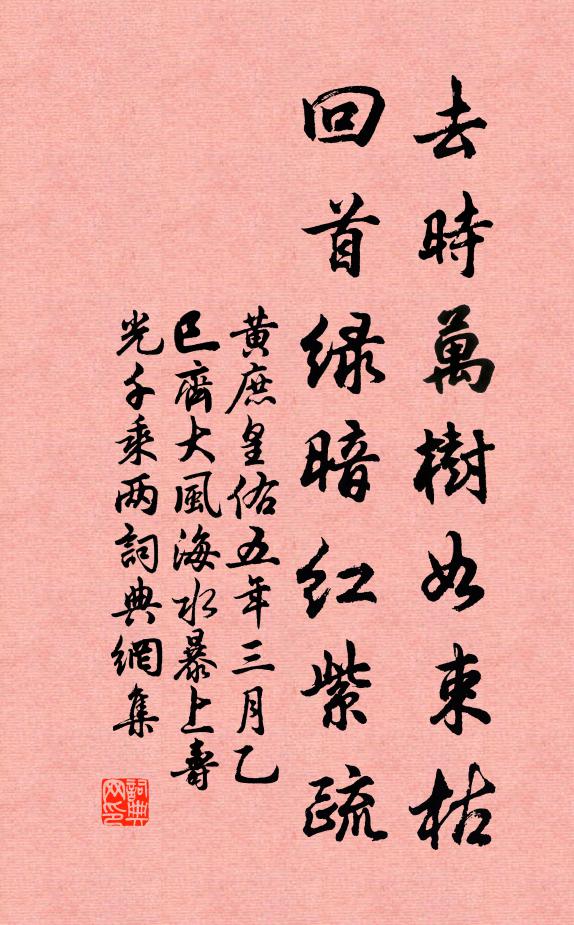 去時萬樹如束枯
回首綠暗紅紫疏
黃庶皇佑五年三月乙
巳齊大風海水暴上壽
光千乘兩詞典網集
詞典網印